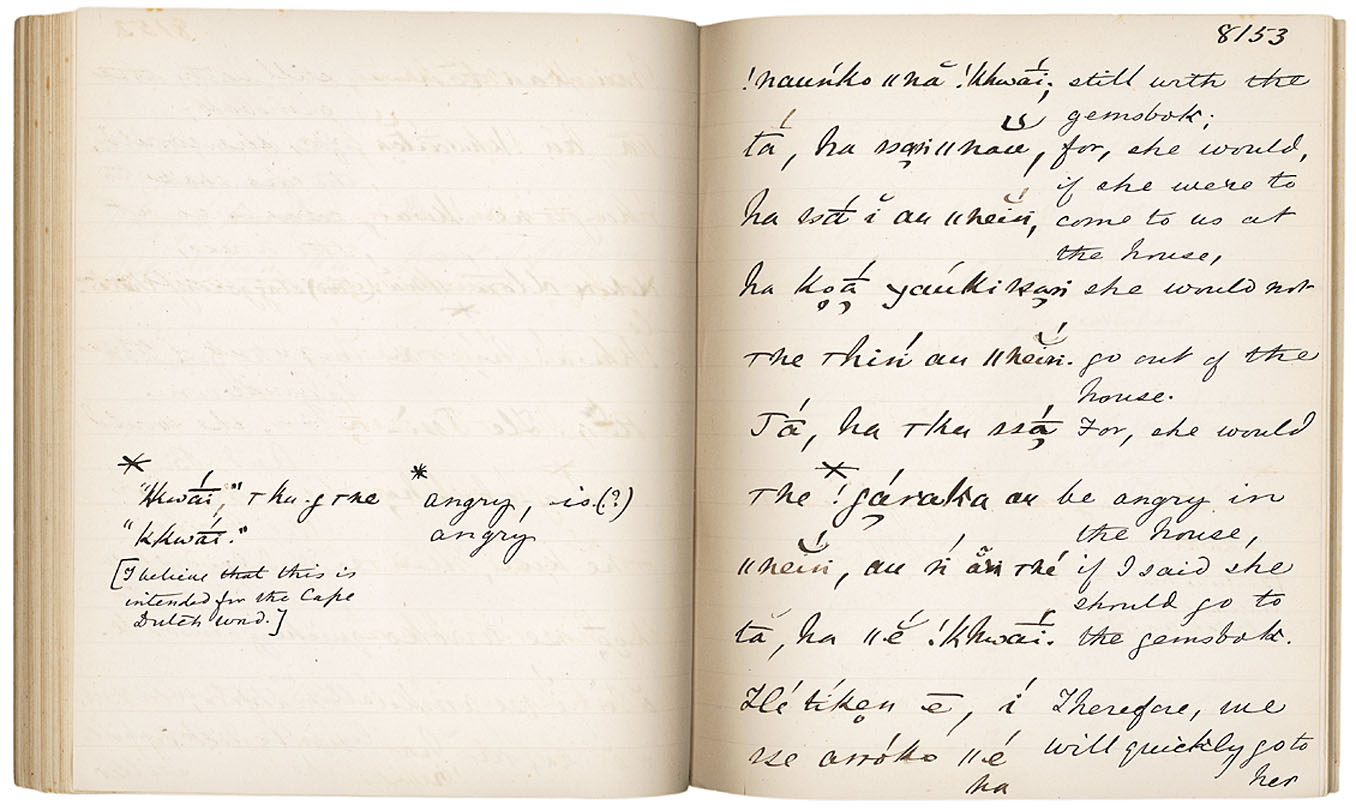 8153
!nauńko ǁnă !khwāí; still with the
gemsbok;
tá, ha ssạnǁnau, for, she would,
if she were to
ha ssā́ ĭ au ǁneiń, come to us at
the house,
ha koā́ yaúki ssạn she would not
ⲧhe ⲧhiń au ǁneiń. go out of the
house.
Tā́, ha ⲧku ssā́ For, she would
ⲧhe *!gáraka au be angry in
the house,
ǁneiń, au ń ăn ⲧhé if I said she
should go to
tă, ha ǁé !khwāí. the gemsbok.
Hé tíken ē, í Therefore, we
sse arróko ǁé will quickly go to
ha her
* *
"Kkwāí," ⲧku g ⲧne angry, is (?)
"kkwāí." angry
[I believe that this is
intended for the Cape
Dutch word.]